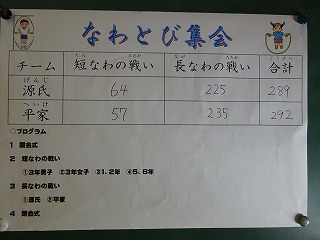 なわとび集会
チーム 短なわの戦い 長なわの戦い 合計
源氏 64 225 289
平家 57 235 292
○プログラム
1 開会式
2 短なわの戦い
①3年男子 ②3年女子 ③1．2年 ④5．6年
3 長なわの戦い
①源氏 ②平家
4 閉会式